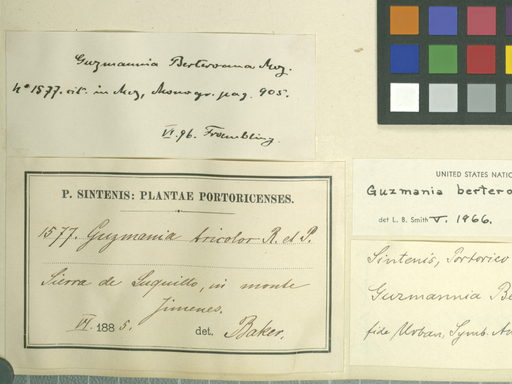 Guzmannia Berteroana Mez.
No 1577. cit. in Mez, Monogr. pag. 905.
VI. 96. Froembling.
P. SINTENIS: PLANTAE PORTORICENSES.
1577. Guzmania tricolor R. et P.
Sierra de Luquillo, in monte
Jimenes.
VI. 1885. det. Baker.
UNITED STATES NATIO
Guzmania bertero
det L. B. Smith V. 1966.
Sintenis, Portorico
Guzmannia Be
fide Urban, Symb. An